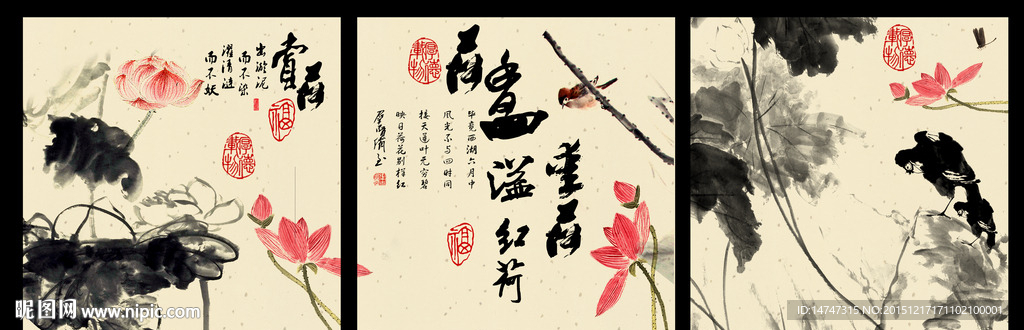 赏荷
出淤泥
而不染
濯清涟
而不妖
福
厚德載物
厚德載物
荷
香
溢
红荷
毕竟西湖六月中
风光不与四时同
接天莲叶无穷碧
映日荷花别样红
福
厚德載物
昵图网 www.nipic.com
ID:14747315 NO:20151217171102100001